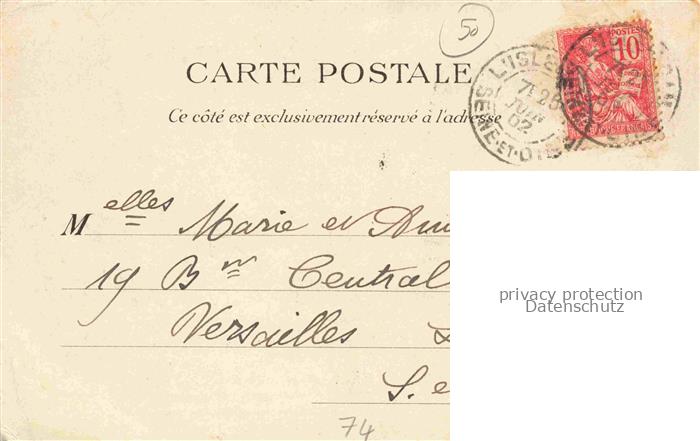 50
CARTE POSTALE
Ce côté est exclusivement réservé à l'adresse
POSTES
10
L'ISLE
7 28
JUIN
02
SEINE-ET-OISE
Melles Marie et
19 Bn Central
Versailles
S. e
74
privacy protection
Datenschutz